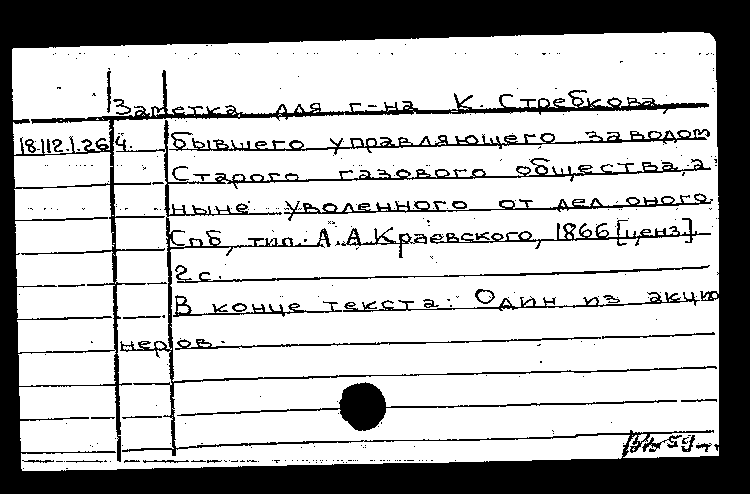 Заметка для г-на К. Стребкова,
18.112.1.264. бывшего управляющего заводом
Старого газового общества, а
ныне уволенного от дел оного.
Спб, тип. А.А. Краевского, 1866 [ценз].
2 с.
В конце текста: Один из акцио
неров.